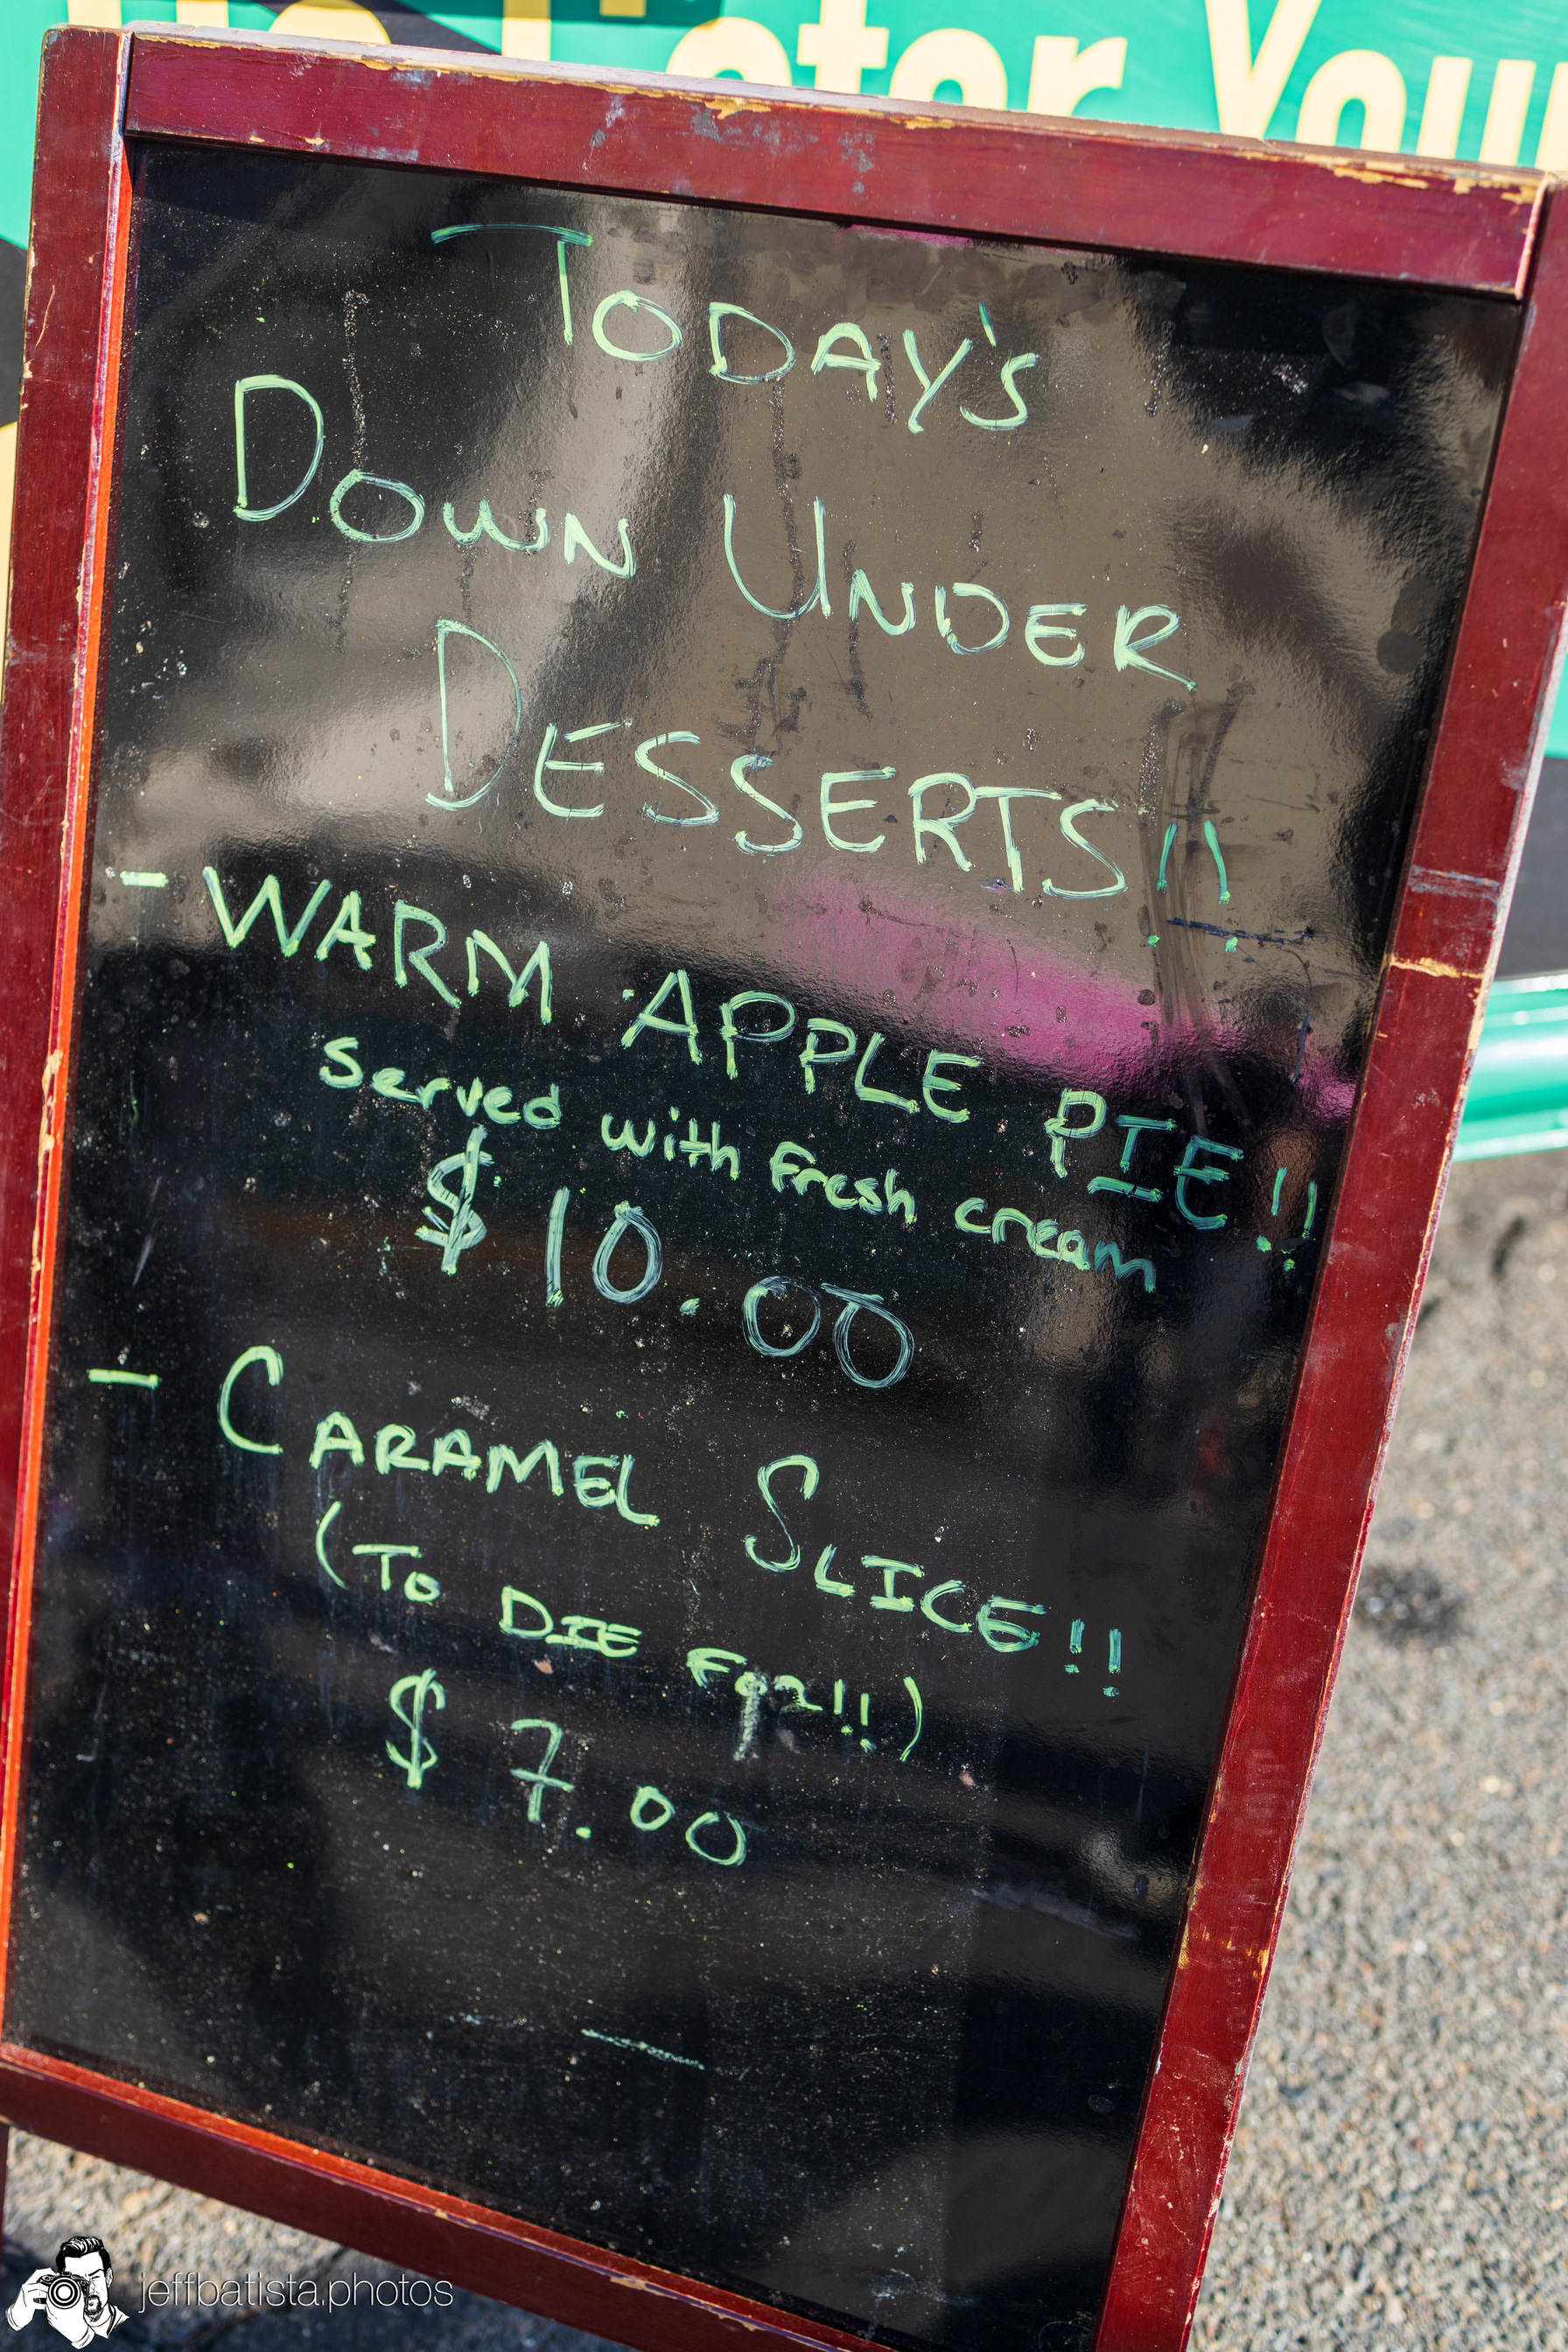 Later You
TODAY'S
DOWN UNDER
DESSERTS!!
- WARM APPLE PIE!!
Served with fresh cream
$10.00
- CARAMEL SLICE!!
(TO DIE FOR!!)
$7.00
jeffbatista.photos